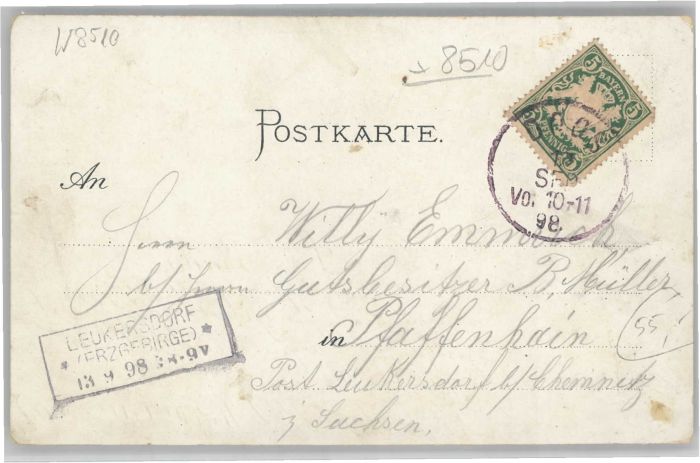 W8510
8510
5 BAYERN 5
PFENNIG
SEP
Vor 10-11
98.
POSTKARTE.
An
Herrn Willÿ Emmrich
b/Herrn Gutsbesitzer B. Müller
in Pfaffenhain
55,-
LEUKERSDORF
* (ERZGEBIRGE) *
13 9 98 8-9V
Post Leukersdorf b/Chemnitz
i/Sachsen.